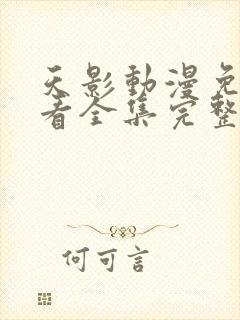 天影動漫免
看全集完整
何可言